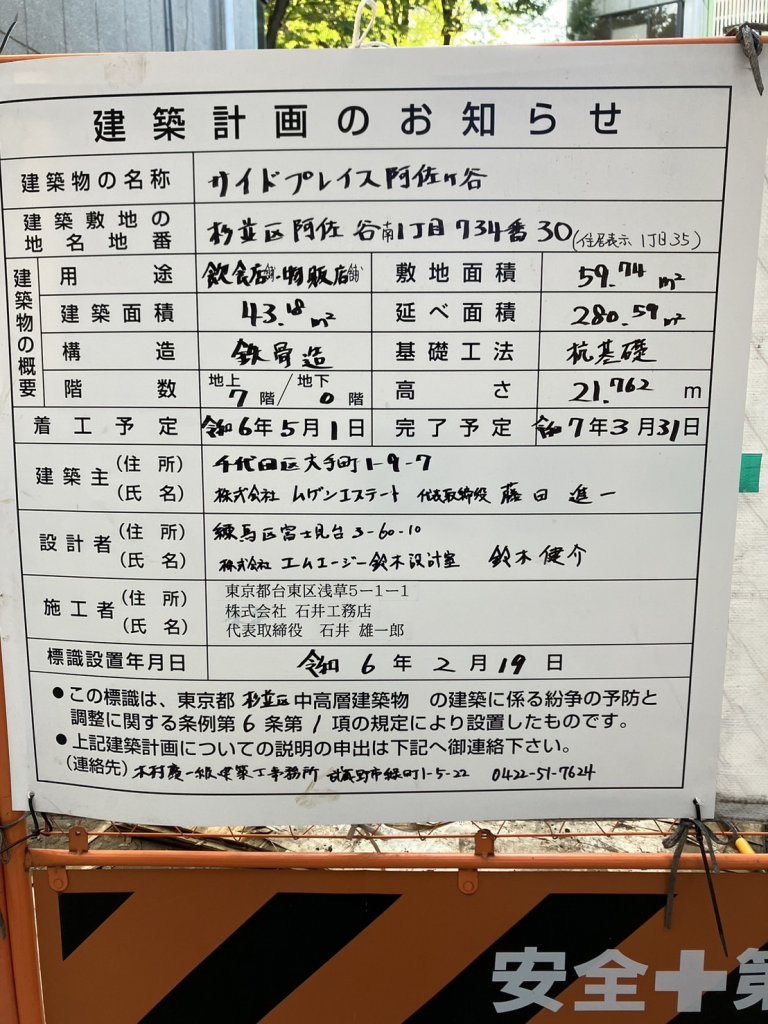 建築計画のお知らせ
建築物の名称 サイドプレイス阿佐ヶ谷
建築敷地の地名地番 杉並区阿佐谷南1丁目734番30(住居表示 1丁目35)
建築物の概要
用途 飲食店舗・物販店舗 敷地面積 59.74㎡
建築面積 43.18㎡ 延べ面積 280.59㎡
構造 鉄骨造 基礎工法 杭基礎
階数 地上7階/地下0階 高さ 21.762m
着工予定 令和6年5月1日 完了予定 令和7年3月31日
建築主 (住所) 千代田区大手町1-9-7
(氏名) 株式会社 ムゲンエステート 代表取締役 藤田進一
設計者 (住所) 練馬区富士見台3-60-10
(氏名) 株式会社 エムエージー鈴木設計室 鈴木健介
施工者 (住所) 東京都台東区浅草5-1-1
(氏名) 株式会社 石井工務店
代表取締役 石井 雄一郎
標識設置年月日 令和6年2月19日
●この標識は、東京都 杉並区 中高層建築物 の建築に係る紛争の予防と
調整に関する条例第6条第1項の規定により設置したものです。
●上記建築計画についての説明の申出は下記へ御連絡下さい。
(連絡先) 木村慶一級建築士事務所 武蔵野市緑町1-5-22 0422-51-7624
安全+第